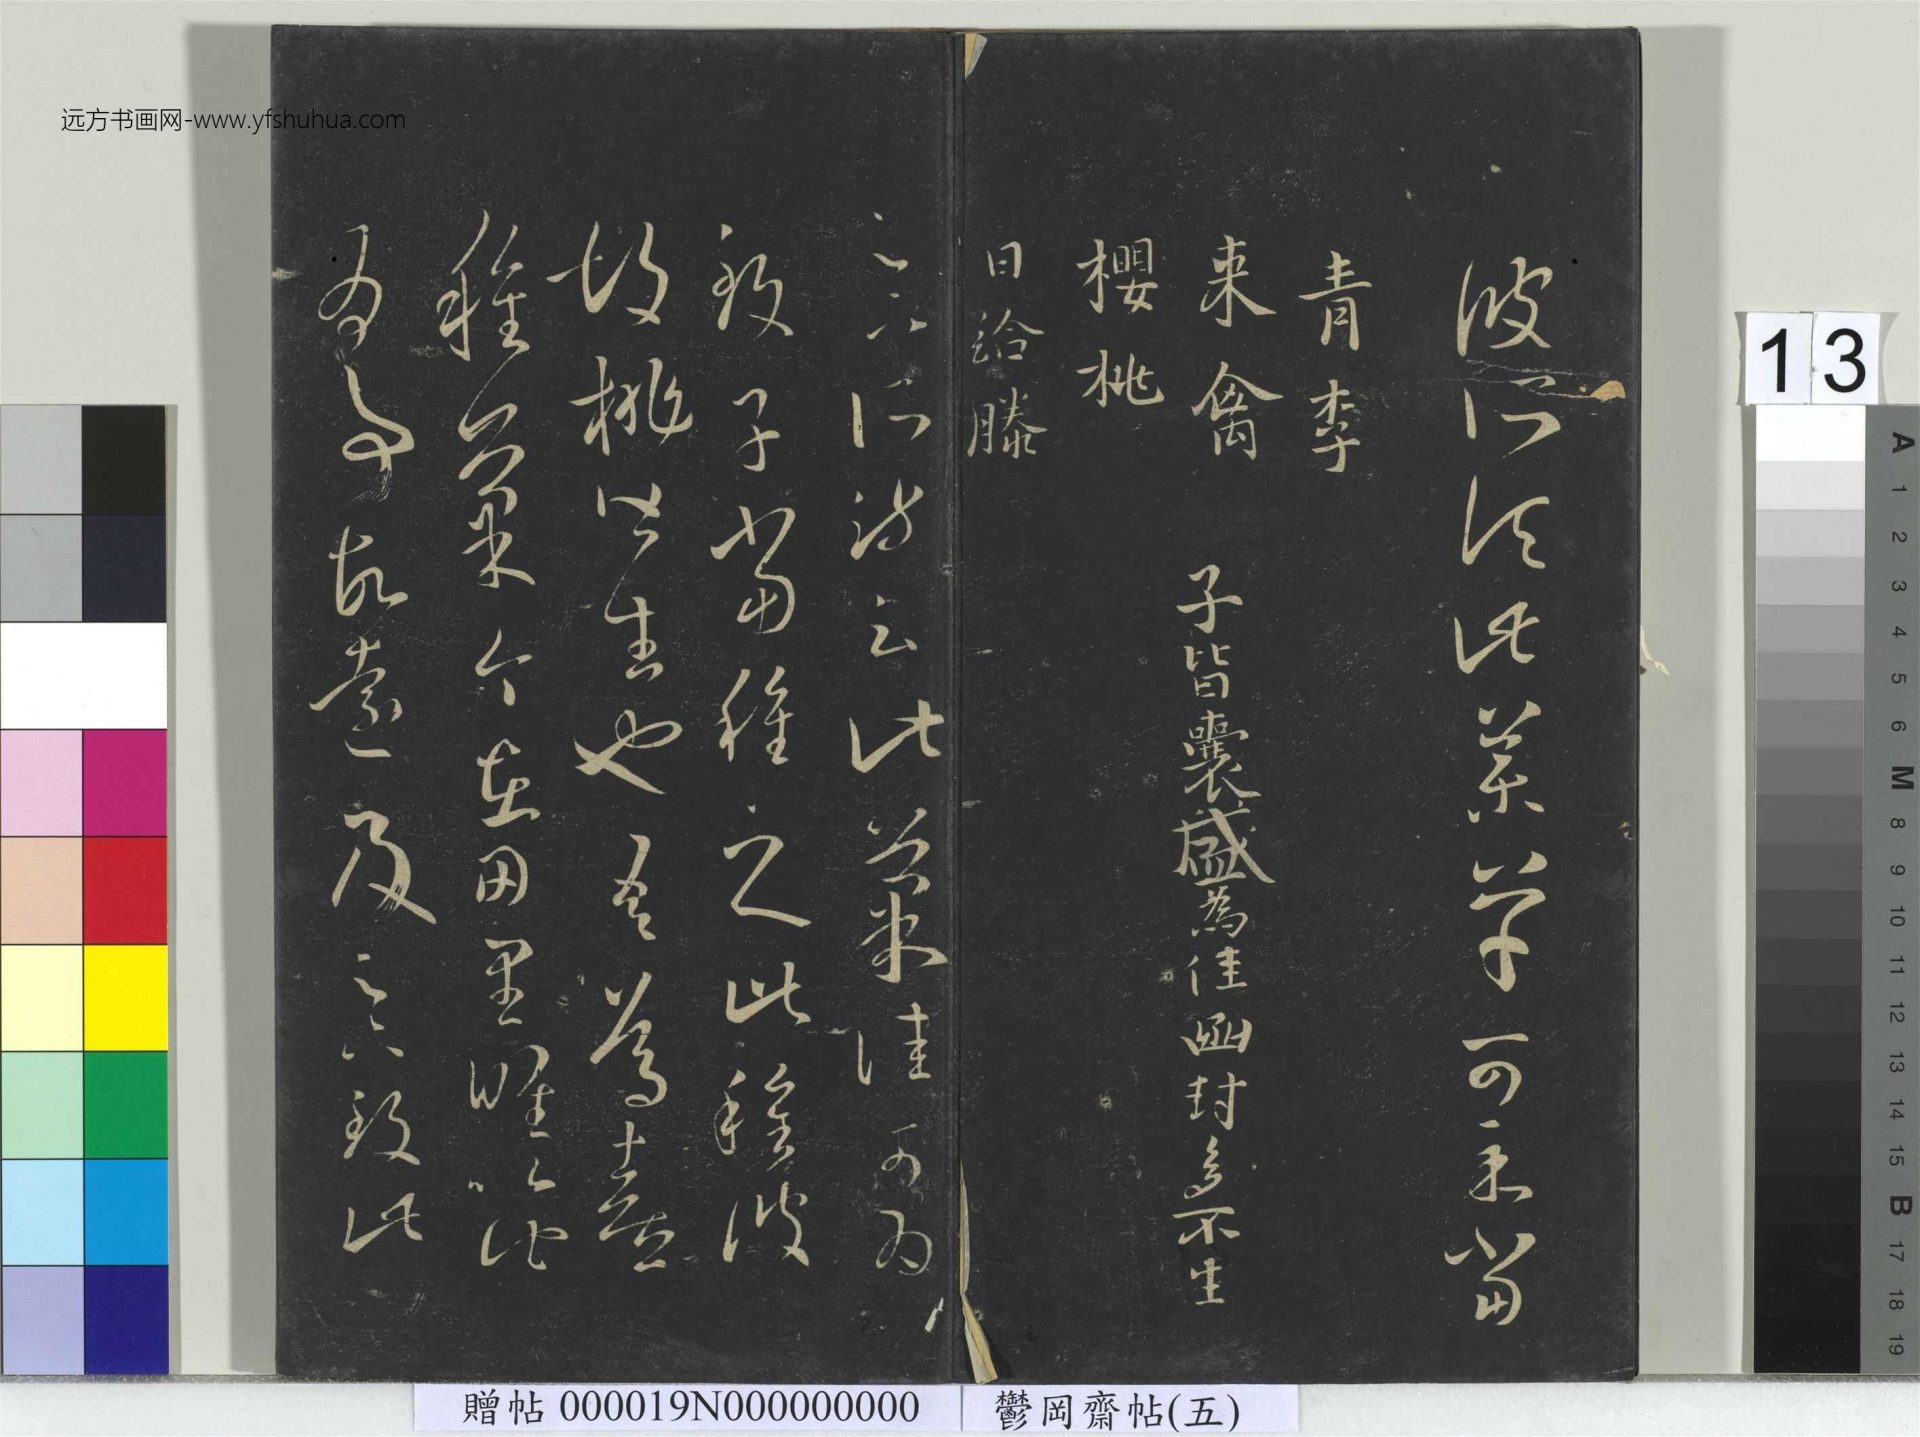 远方书画网-www.yfshuhua.com
彼所須此藥草可示當
青李
来禽 子皆囊盛為佳函封多不生
櫻桃
日給滕
足下所疏云此菓佳可為
致子當種之此種彼
胡桃皆生也吾篤喜
種菓今在田里唯以此
為事故遠及足下致此
13
A 1 2 3 4 5 6 M 8 9 10 11 12 13 14 15 B 17 18 19
贈帖 000019N000000000
鬱岡齋帖(五)